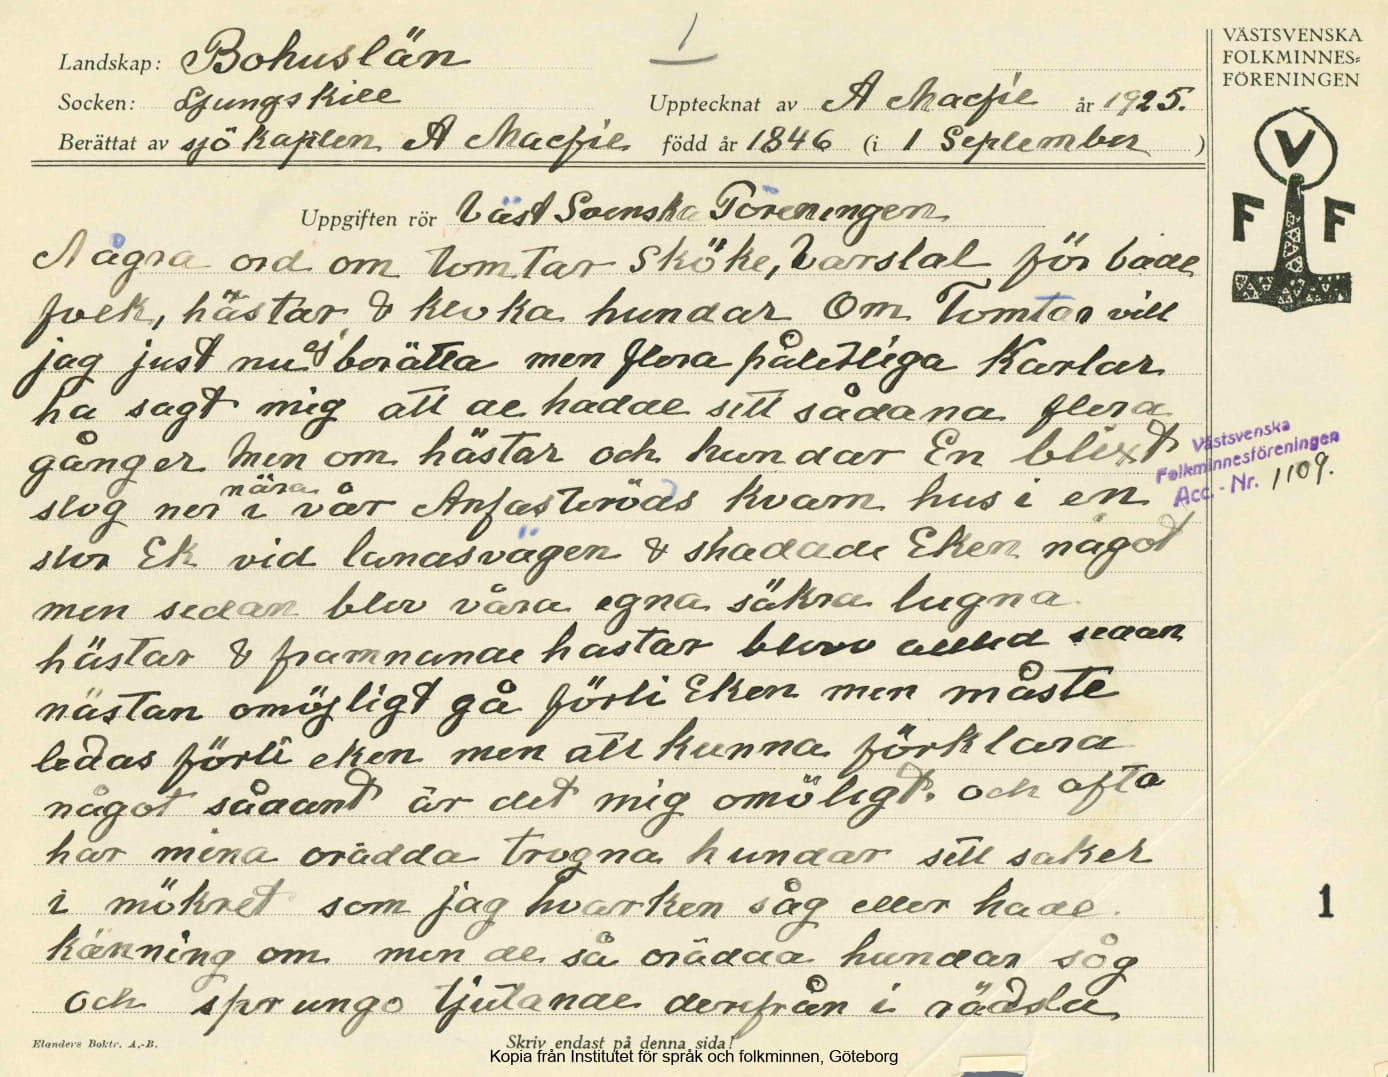 Landskap: Bohuslän
1
Socken: Ljungskile
Upptecknat av A Macfie år 1925.
Berättat av sjökapten A Macfie född år 1846 (i 1 September )
VÄSTSVENSKA
FOLKMINNES=
FÖRENINGEN
V
F F
Uppgiften rör Väst Svenska Föreningen
Några ord om tomtar Sköke, Varslal för både
folk, hästar & kloka hundar Om Tomtar vill
jag just nu ej berätta men flera pålitliga Karlar
ha sagt mig att de hadde sett sådana flera
gånger Men om hästar och hundar En blixt
slog ner nära i vår Anfasteröds kvarn hus i en
stor Ek vid landsvägen & skadade Eken något
men sedan blev våra egna säkra lugna
hästar & frammande hastar blevo alltid sedan
nästan omöjligt gå förbi Eken men måste
ledas förbi eken men att kunna förklara
något sådant är det mig omöligt. och ofta
har mina orädda trogna hundar sett saker
i mökret som jag hvarken såg eller hade
känning om men de så orädda hundar såg
och sprungo tjutande derifrån i rädsla
Västsvenska
Folkminnesföreningen
Acc.-Nr. 1109.
1
Elanders Boktr. A.-B.
Skriv endast på denna sida!
Kopia från Institutet för språk och folkminnen, Göteborg